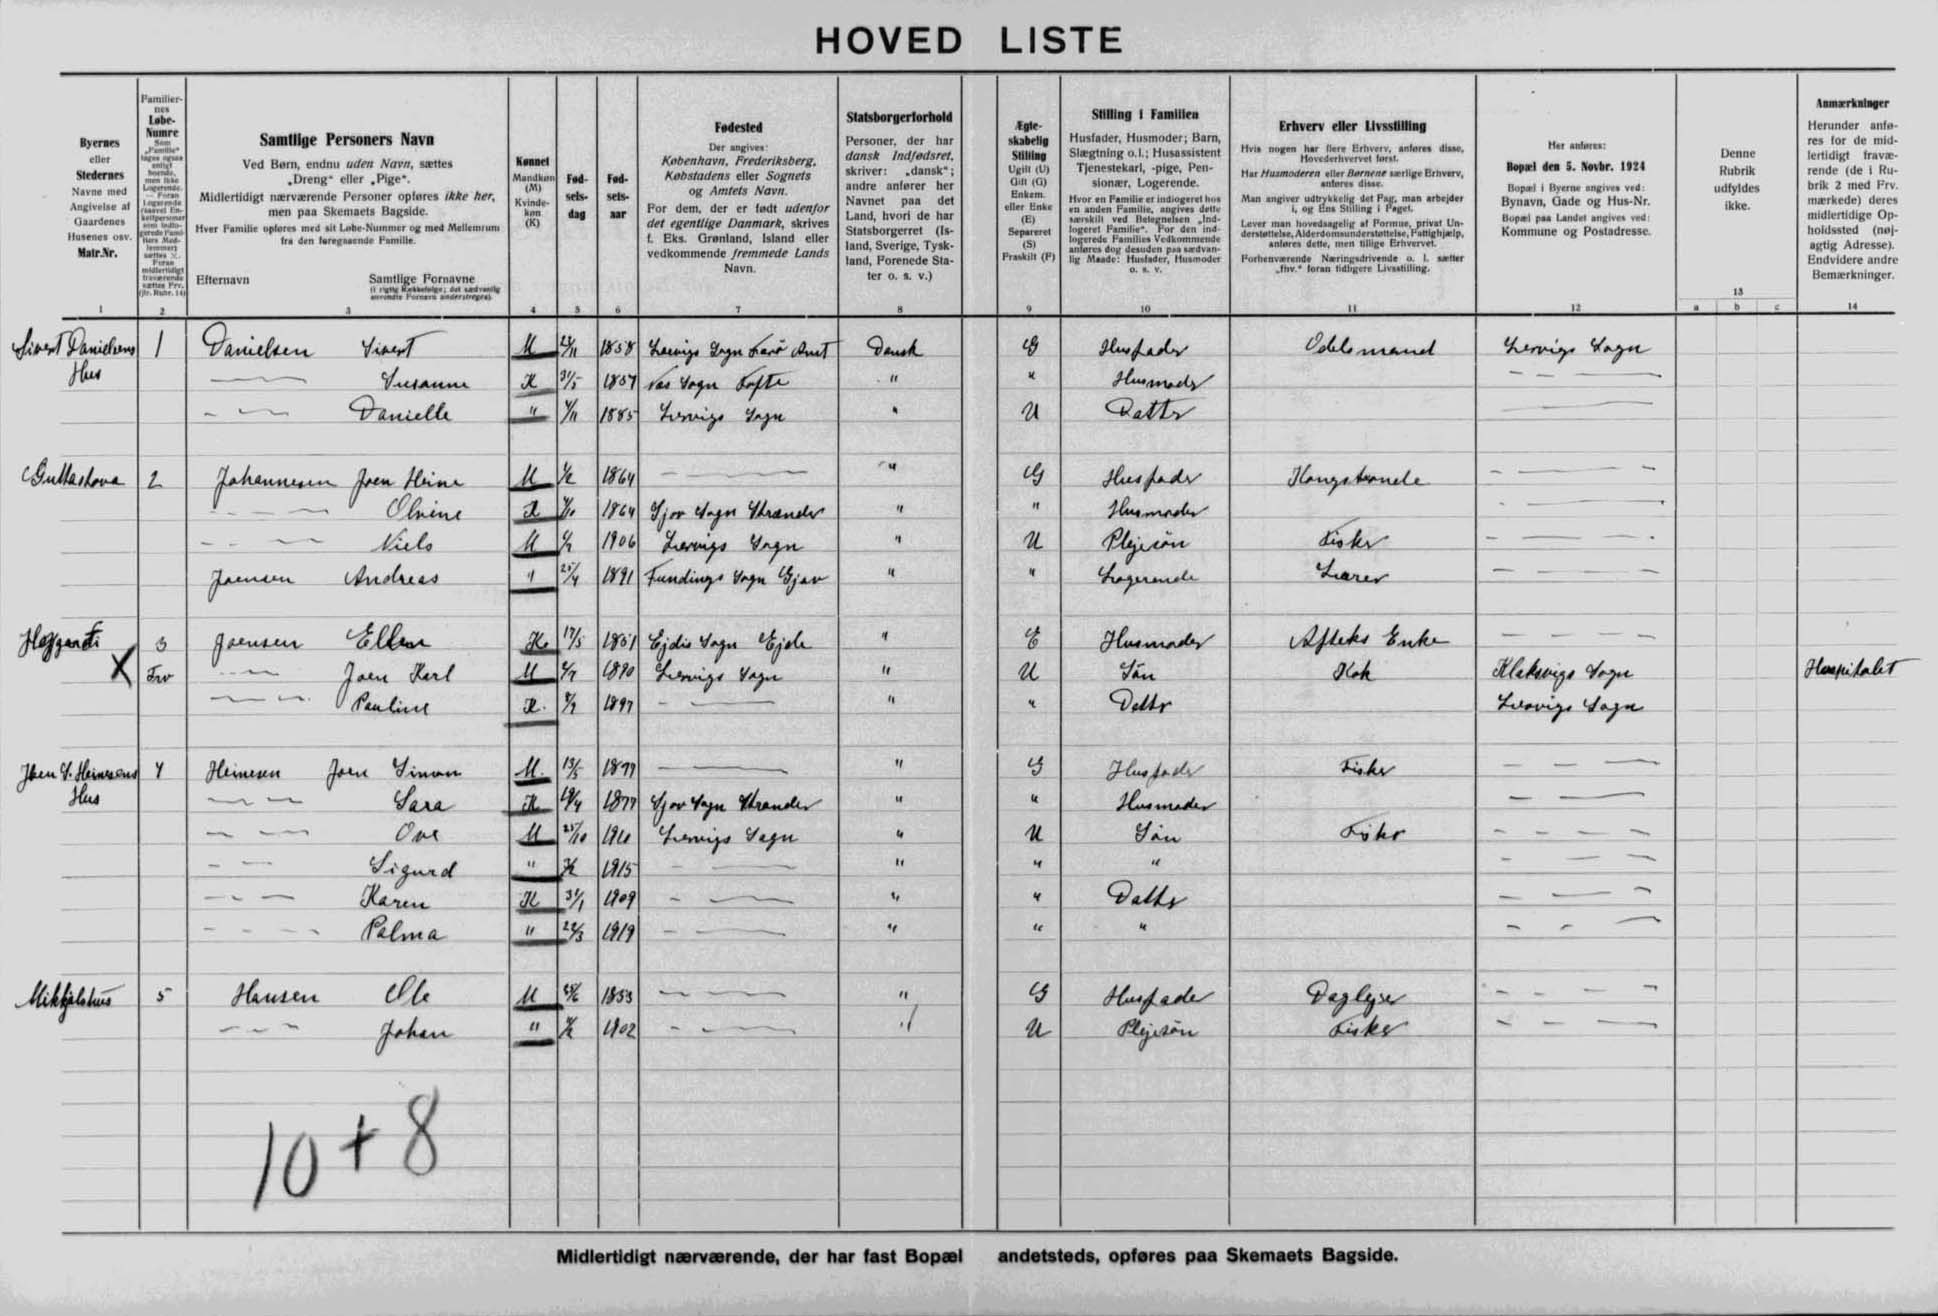 HOVED LISTE
Byernes
eller
Stedernes
Navne med
Angivelse af
Gaardenes
Husenes osv.
Matr.Nr.
1
Familier-
nes
Løbe-
Numre
2
Samtlige Personers Navn
Ved Børn, endnu uden Navn, sættes
„Dreng“ eller „Pige“.
Midlertidigt nærværende Personer opføres ikke her,
men paa Skemaets Bagside.
Hver Familie opføres med sit Løbe-Nummer og med Mellemrum
fra den foregaaende Familie.
Efternavn Samtlige Fornavne
(i rigtig Rækkefølge; det sædvanlig
anvendte Fornavn understreges).
3
Kønnet
Mandkøn
(M)
Kvinde-
køn
(K)
4
Fød-
sels-
dag
5
Fød-
sels-
aar
6
Fødested
Der angives:
København, Frederiksberg,
Købstadens eller Sognets
og Amtets Navn.
For dem, der er født udenfor
det egentlige Danmark, skrives
f. Eks. Grønland, Island eller
vedkommende fremmede Lands
Navn.
7
Statsborgerforhold
Personer, der har
dansk Indfødsret,
skriver: „dansk“;
andre anfører her
Navnet paa det
Land, hvori de har
Statsborgerret (Is-
land, Sverige, Tysk-
land, Forenede Sta-
ter o. s. v.)
8
Ægte-
skabelig
Stilling
Ugift (U)
Gift (G)
Enkem.
eller Enke
(E)
Separeret
(S)
Fraskilt (F)
9
Stilling i Familien
Husfader, Husmoder; Barn,
Slægtning o.l.; Husassistent
Tjenestekarl, -pige, Pen-
sionær, Logerende.
Hvor en Familie er indlogeret hos
en anden Familie, angives dette
særskilt ved Betegnelsen „Ind-
logeret Familie“. For den ind-
logerede Families Vedkommende
anføres dog desuden paa sædvan-
lig Maade: Husfader, Husmoder
o. s. v.
10
Erhverv eller Livsstilling
Hvis nogen har flere Erhverv, anføres disse,
Hovederhvervet først.
Har Husmoderen eller Børnene særlige Erhverv,
anføres disse.
Man angiver udtrykkelig det Fag, man arbejder
i, og Ens Stilling i Faget.
Lever man hovedsagelig af Formue, privat Un-
derstøttelse, Alderdomsunderstøttelse, Fattighjælp,
anføres dette, men tillige Erhvervet.
Forhenværende Næringsdrivende o. l. sætter
„fhv.“ foran tidligere Livsstilling.
11
Her anføres:
Bopæl den 5. Novbr. 1924
Bopæl i Byerne angives ved:
Bynavn, Gade og Hus-Nr.
Bopæl paa Landet angives ved:
Kommune og Postadresse.
12
Denne
Rubrik
udfyldes
ikke.
13
a b c
Anmærkninger
Herunder anfø-
res for de mid-
lertidigt fravæ-
rende (de i Ru-
brik 2 med Frv.
mærkede) deres
midlertidige Op-
holdssted (nøj-
agtig Adresse).
Endvidere andre
Bemærkninger.
14
Sivert Danielsens 1 Danielsen Sivert M 1858 Lervigs Sogn Færø Amt Dansk G Husfader Odelsmand Lervigs Sogn
Hus Susanne K 31/5 1857 Nes Sogn Tofte " " Husmoder
Danielle " 1885 Lervigs Sogn " U Datter
2 Johannesen Joen Heine M 1864 " G Husfader Kongsbonde
Olvine K 1864 Gjov Sogn Strander " " Husmoder
Niels M 1906 Lervigs Sogn " U Plejesøn Fisker
Joensen Andreas " 25/4 1891 Fundings Sogn Gjov " " Logerende Lærer
3 Joensen Ellen K 17/5 1851 Ejdis Sogn Ejde " E Husmoder Aftægts Enke
X Frv Joen Karl M 1890 Lervigs Sogn " U Søn Kok Klaksvigs Sogn Hospitalet
Pauline K. 1897 " " Datter Lervigs Sogn
Joen S. Heinesens 4 Heinesen Joen Simon M. 13/5 1877 " G Husfader Fisker
Hus Sara K 19/4 1877 Gjov Sogn Strander " " Husmoder
Ove M 25/10 1910 Lervigs Sogn " U Søn Fisker
Sigurd " 1915 " " "
Karen K 31/1 1909 " " Datter
Palma " 22/3 1919 " " "
Mikkjalshus 5 Hansen Ole M 25/6 1853 " G Husfader Daglejer
Johan " 1902 " U Plejesøn Fisker
10 + 8
Midlertidigt nærværende, der har fast Bopæl andetsteds, opføres paa Skemaets Bagside.